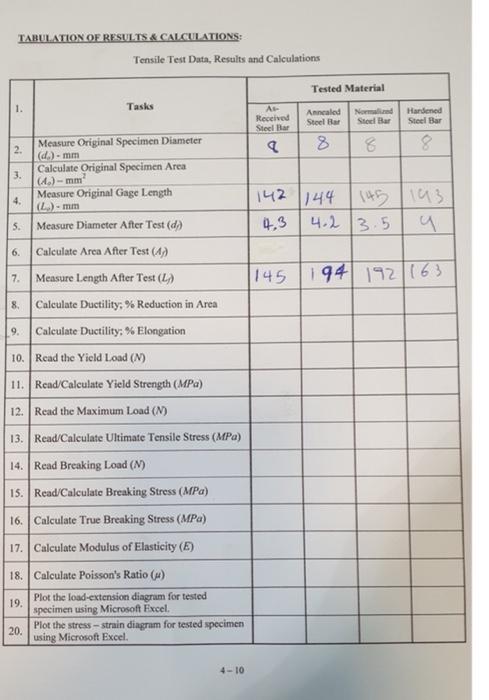 TABULATION OF RESULTS & CALCULATIONS:
Tensile Test Data, Results and Calculations
1. Tasks Tested Material
As-Received Steel Bar Annealed Steel Bar Normalized Steel Bar Hardened Steel Bar
2. Measure Original Specimen Diameter (dₒ) - mm 8 8 8
3. Calculate Original Specimen Area (Aₒ) – mm²
4. Measure Original Gage Length (Lₒ) - mm 142 144 145 143
5. Measure Diameter After Test (d_f) 4.3 4.2 3.5 4
6. Calculate Area After Test (A_f)
7. Measure Length After Test (L_f) 145 194 192 163
8. Calculate Ductility; % Reduction in Area
9. Calculate Ductility; % Elongation
10. Read the Yield Load (N)
11. Read/Calculate Yield Strength (MPa)
12. Read the Maximum Load (N)
13. Read/Calculate Ultimate Tensile Stress (MPa)
14. Read Breaking Load (N)
15. Read/Calculate Breaking Stress (MPa)
16. Calculate True Breaking Stress (MPa)
17. Calculate Modulus of Elasticity (E)
18. Calculate Poisson's Ratio (μ)
19. Plot the load-extension diagram for tested specimen using Microsoft Excel.
20. Plot the stress – strain diagram for tested specimen using Microsoft Excel.
4 – 10